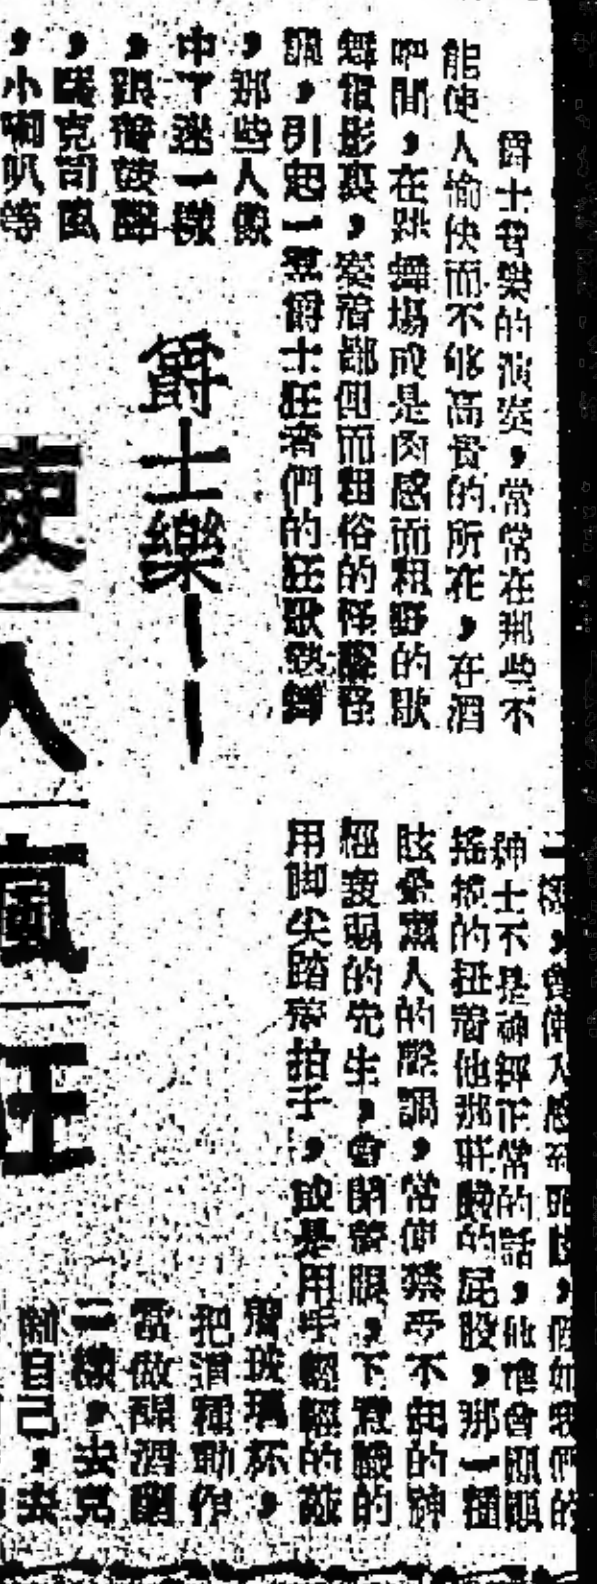 爵士音樂的演奏，常常在那些不
能使人愉快而不够高貴的所在，在酒
吧間，在跳舞場或是肉感而粗野的歌
舞電影裏，奏着鄙俚而粗俗的怪聲怪
調，引起一羣爵士狂者們的狂歌熱舞
，那些人像
中了迷一樣
，跟着鼓聲
，薩克司風
，小喇叭等
爵士樂——
使人瘋狂
一樣，會使人感到，假如我們的
紳士不是神經正常的話，他會
搖擺的扭着他那胖的屁股，那一種
眩暈薰人的聲調，常使禁受不起的神
經衰弱的先生，會閉着眼，下意識的
用脚尖踏着拍子，或是用手輕輕的敲
着玻璃杯，
把這種動作
當做醒酒
一樣，去克
制自己，去